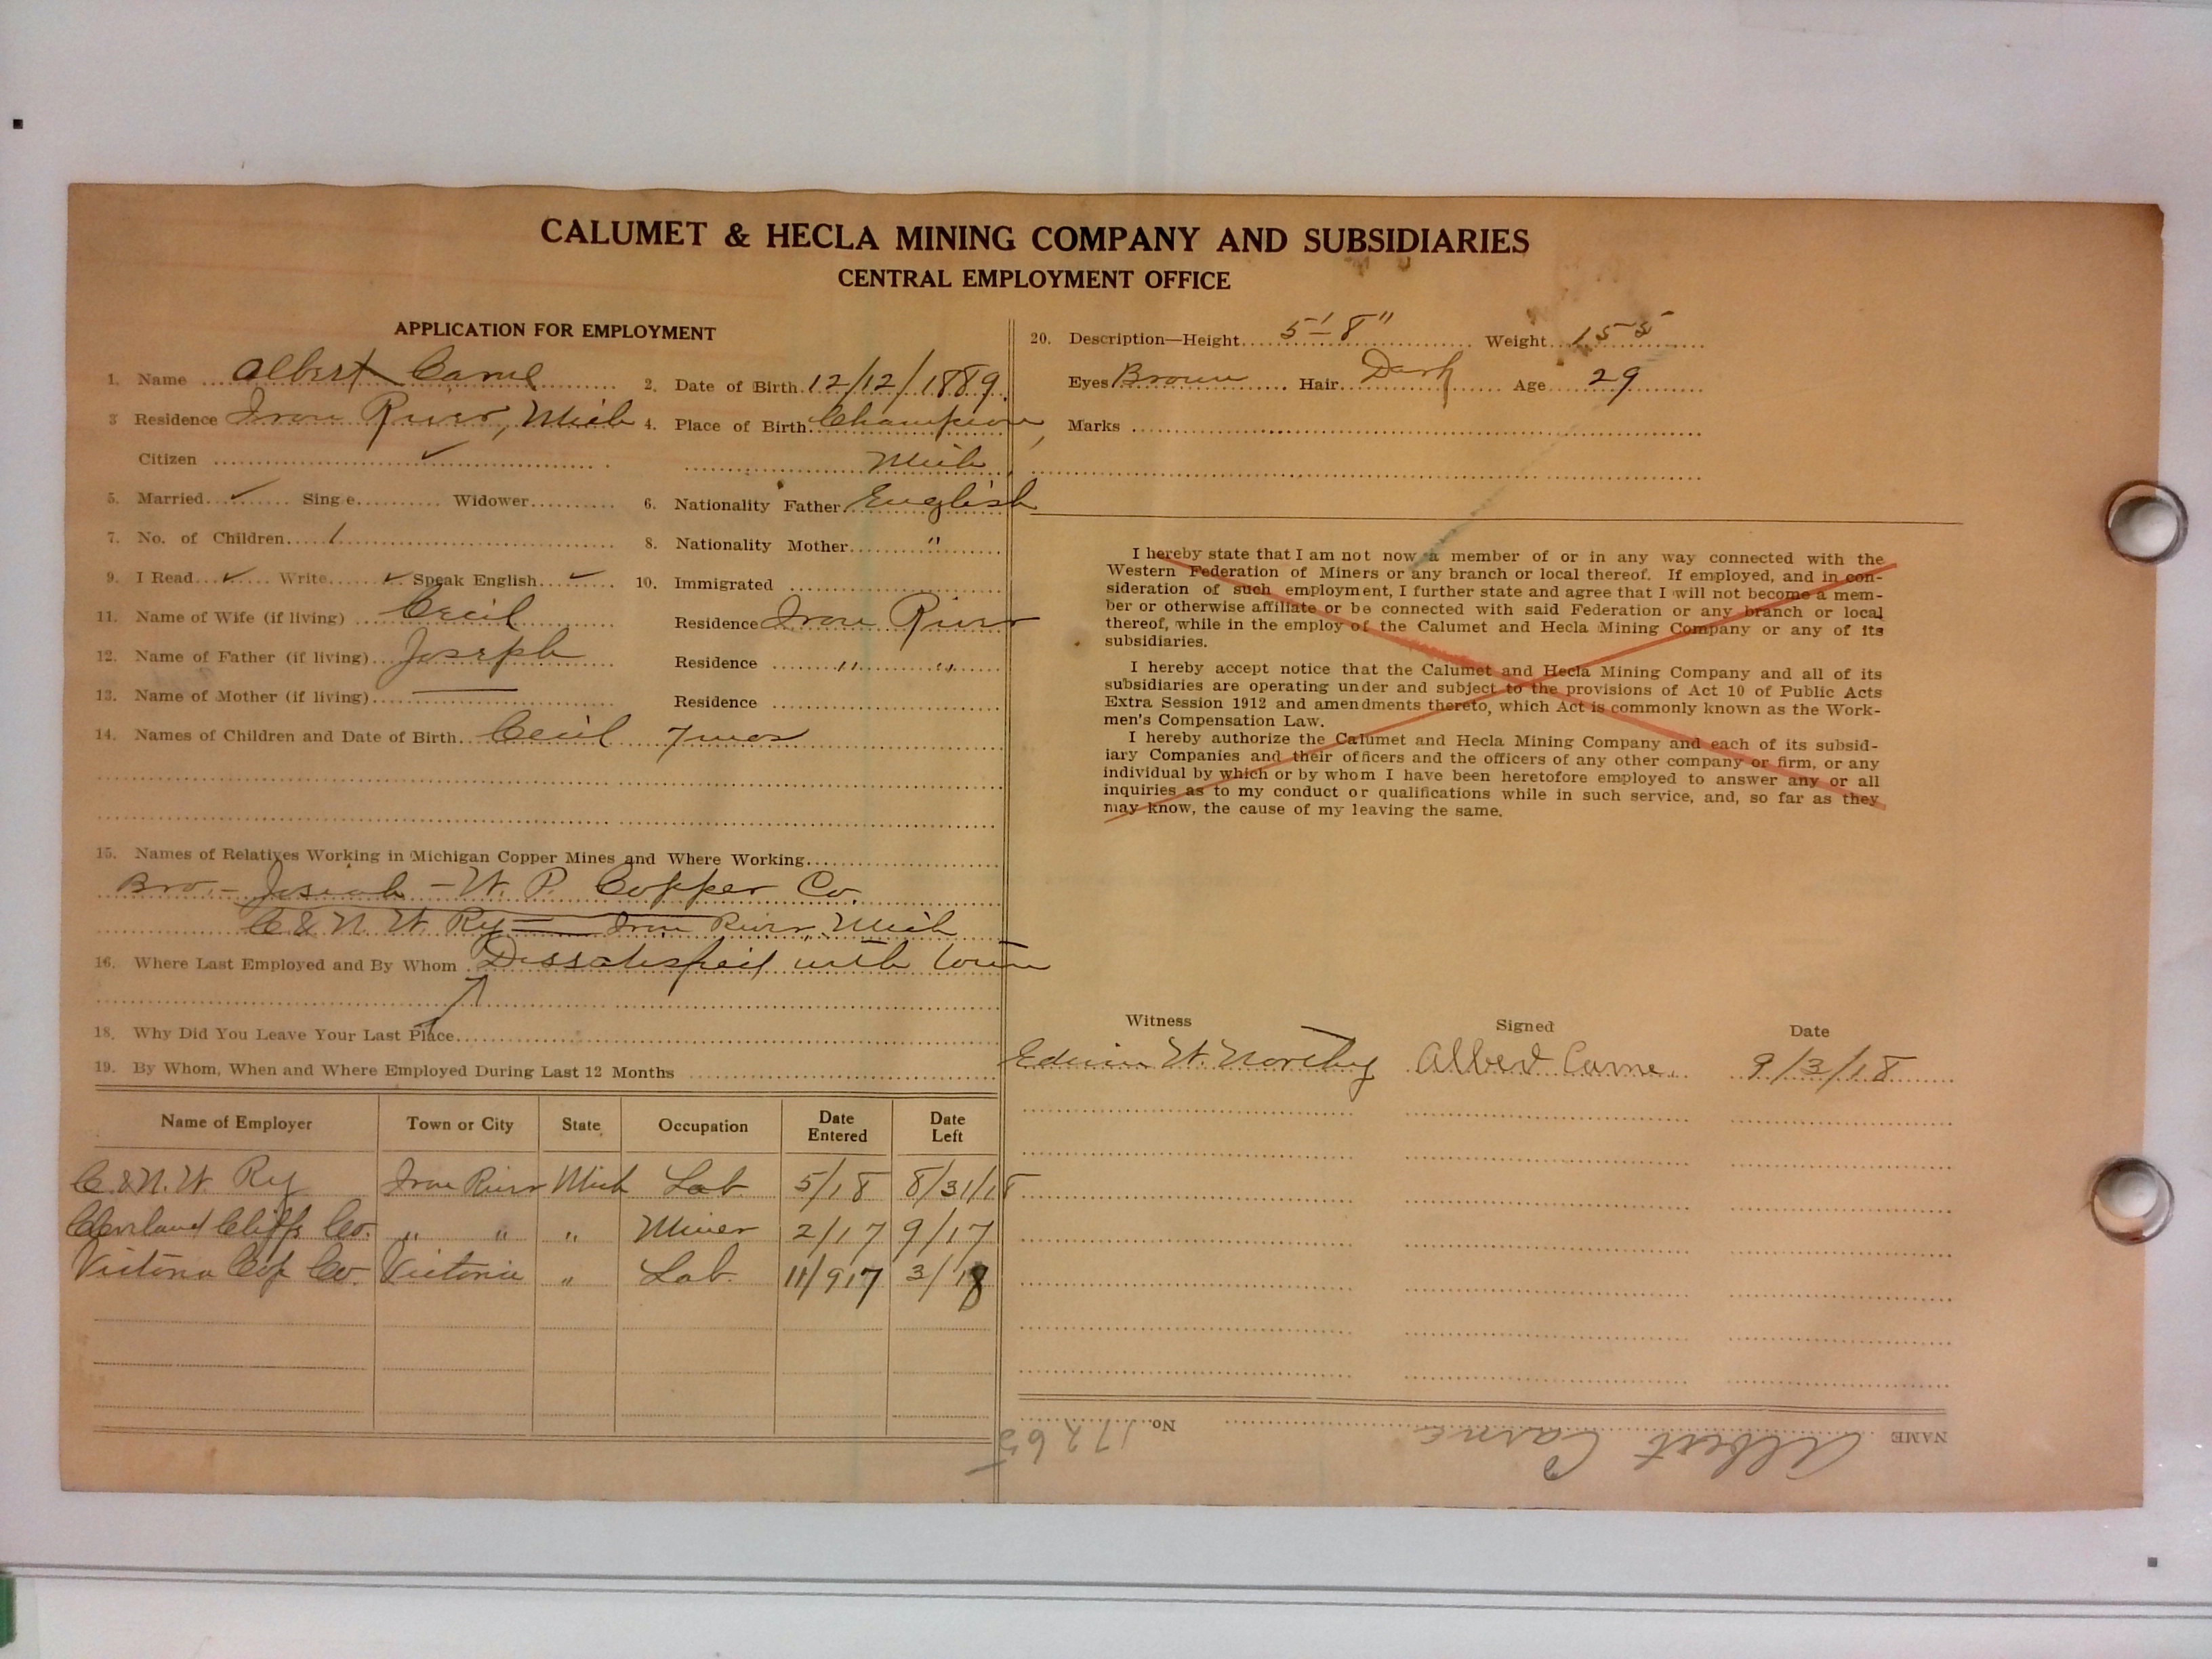 CALUMET & HECLA MINING COMPANY AND SUBSIDIARIES
CENTRAL EMPLOYMENT OFFICE
APPLICATION FOR EMPLOYMENT
1. Name Albert Carne 2. Date of Birth 12/12/1889
3 Residence Iron River, Mich 4. Place of Birth Champion,
Citizen ✓ Mich
5. Married ✓ Sing e Widower 6. Nationality Father English
7. No. of Children 1 8. Nationality Mother "
9. I Read ✓ Write ✓ Speak English ✓ 10. Immigrated
11. Name of Wife (if living) Cecil Residence Iron River
12. Name of Father (if living) Joseph Residence " "
13. Name of Mother (if living) — Residence
14. Names of Children and Date of Birth Cecil 7 mos
15. Names of Relatives Working in Michigan Copper Mines and Where Working
Bro. - Josiah - W. P. Copper Co.
C & N. W. Ry — Iron River, Mich
16. Where Last Employed and By Whom Dissatisfied with town
18. Why Did You Leave Your Last Place
19. By Whom, When and Where Employed During Last 12 Months
Name of Employer Town or City State Occupation Date Entered Date Left
C. & N. W. Ry Iron River Mich Lab 5/18 8/31/18
Cleveland Cliffs Co. " " " Miner 2/17 9/17
Victoria Cop Co. Victoria " Lab. 11/917 3/18
20. Description—Height 5'-8" Weight 155
Eyes Brown Hair Dark Age 29
Marks
I hereby state that I am not now a member of or in any way connected with the
Western Federation of Miners or any branch or local thereof. If employed, and in con-
sideration of such employment, I further state and agree that I will not become a mem-
ber or otherwise affiliate or be connected with said Federation or any branch or local
thereof, while in the employ of the Calumet and Hecla Mining Company or any of its
subsidiaries.
I hereby accept notice that the Calumet and Hecla Mining Company and all of its
subsidiaries are operating under and subject to the provisions of Act 10 of Public Acts
Extra Session 1912 and amendments thereto, which Act is commonly known as the Work-
men's Compensation Law.
I hereby authorize the Calumet and Hecla Mining Company and each of its subsid-
iary Companies and their officers and the officers of any other company or firm, or any
individual by which or by whom I have been heretofore employed to answer any or all
inquiries as to my conduct or qualifications while in such service, and, so far as they
may know, the cause of my leaving the same.
Witness Signed Date
Edwin W. Albert Carne. 9/3/18
NAME Albert Carne No. 17265